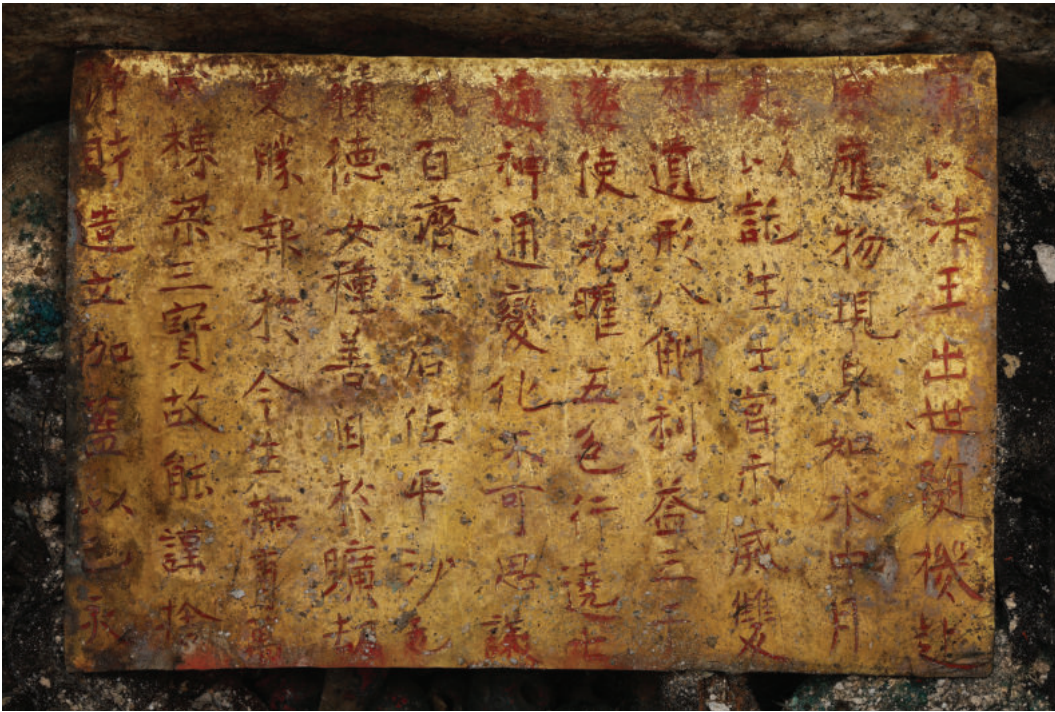 竊以法王出世随機赴
感應物現身如水中月
是以託生王宮示滅雙
樹遺形八斛利益三千
遂使光曜五色行遶七
遍神通變化不可思議
我百濟王后佐平沙乇
積德女種善因於曠劫
受勝報於今生撫育萬
民棟梁三寶故能謹捨
淨財造立伽藍以己亥